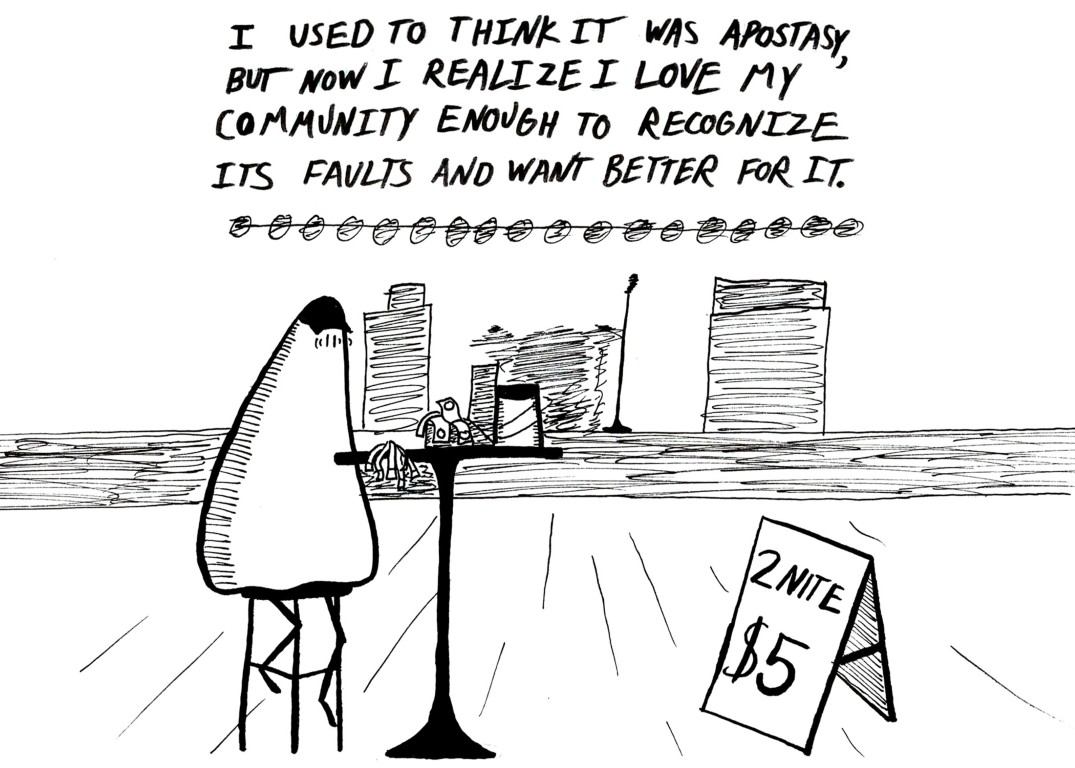 I USED TO THINK IT WAS APOSTASY,
BUT NOW I REALIZE I LOVE MY
COMMUNITY ENOUGH TO RECOGNIZE
ITS FAULTS AND WANT BETTER FOR IT.
2NITE
$5